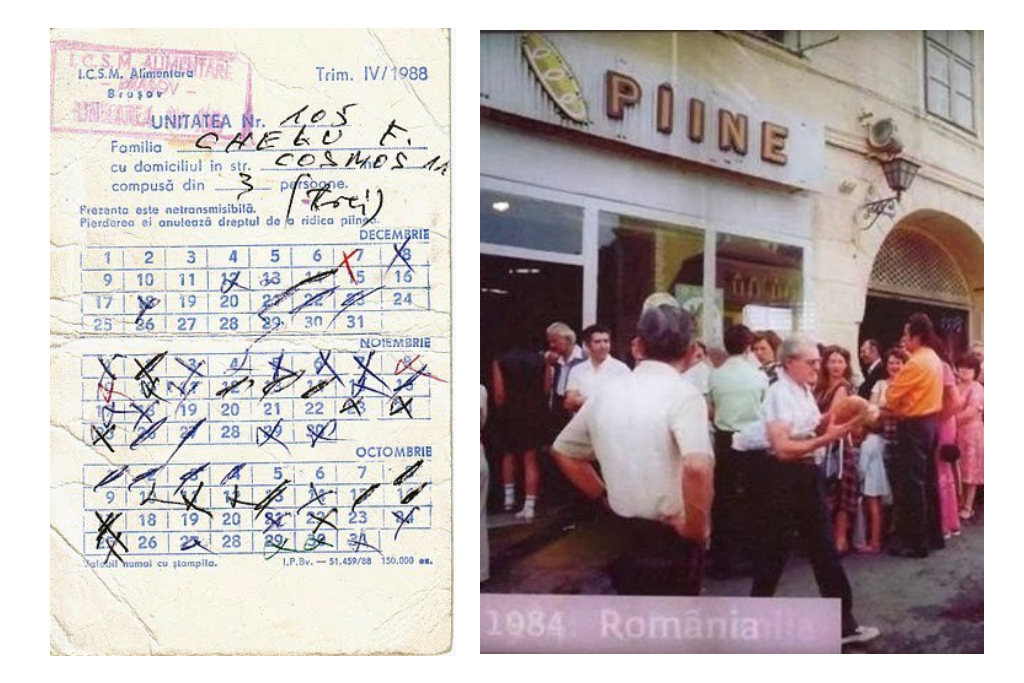 I.C.S.M. ALIMENTARE
- BRASOV -
I.C.S.M. Alimentara
Brașov
Trim. IV/1988
UNITATEA Nr. 105
Familia CHELU F.
cu domiciliul in str. COSMOS 11
compusă din 3 persoane.
(Trei)
Prezenta este netransmisibilă.
Pierderea ei anulează dreptul de a ridica piinea.
DECEMBRIE
1 2 3 4 5 6 7 8
9 10 11 12 13 14 15 16
17 18 19 20 21 22 23 24
25 26 27 28 29 30 31
NOIEMBRIE
3 4 5 6 7 8
12 16
18 19 20 21 22 23 24
26 27 28 29 30
OCTOMBRIE
4 5 6 7
9 10 11 12 13 14
18 19 20 21 22 23 24
26 27 28 29 30 31
Valabil numai cu ștampila.
I.P.Bv. — 51.459/88 150.000 ex.
PIINE
1984: România